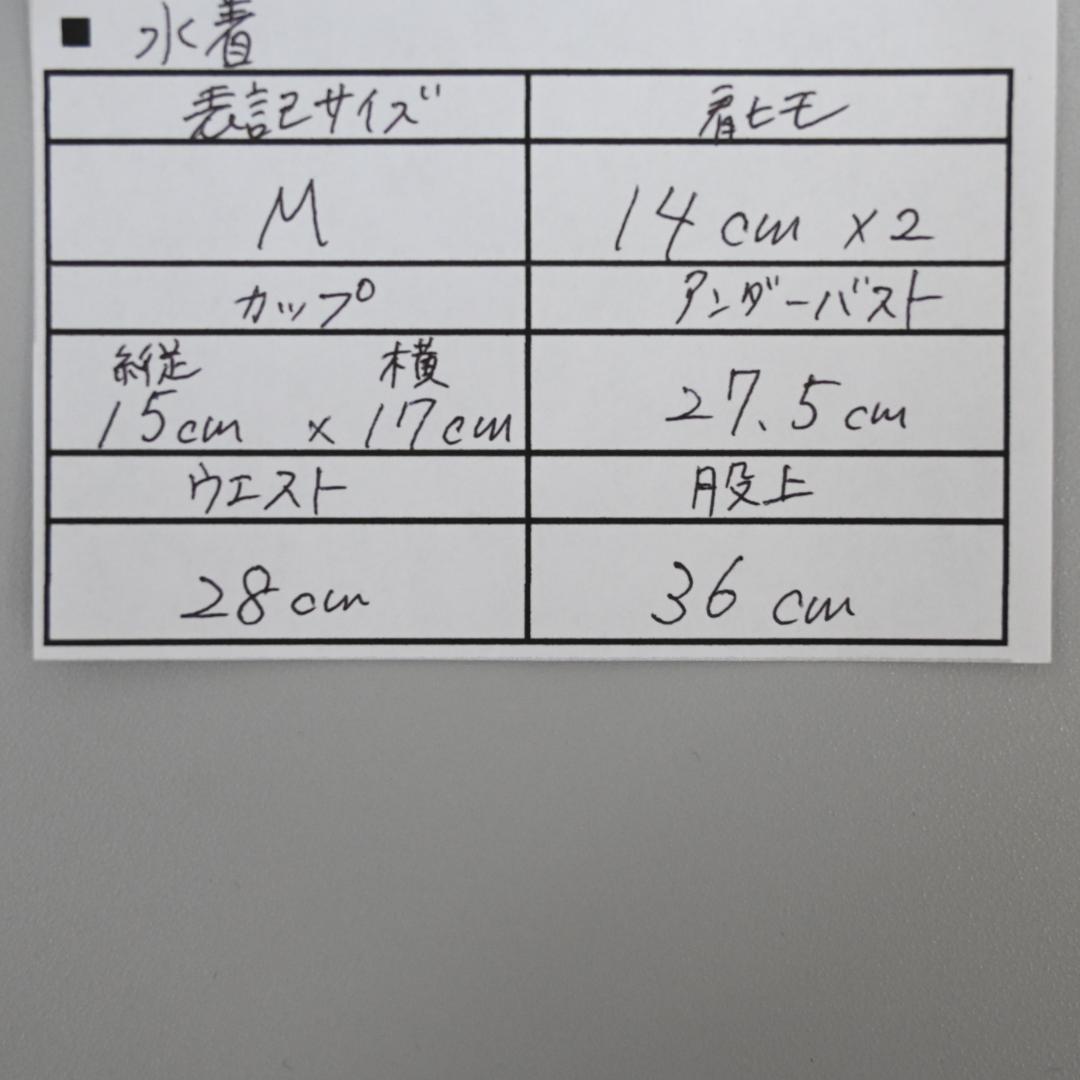 ■ 水着
表記サイズ 肩ヒモ
M 14cm×2
カップ アンダーバスト
縦 横
15cm × 17cm 27.5cm
ウエスト 股上
28cm 36cm